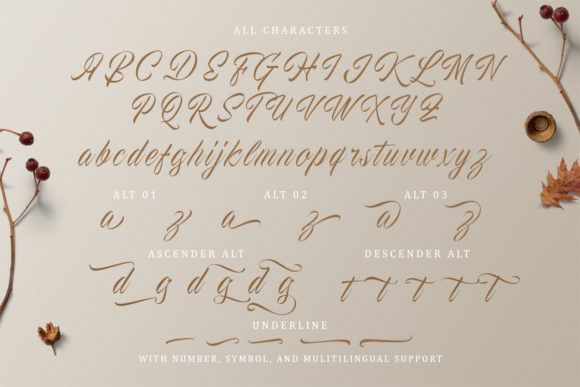 ALL CHARACTERS
ABCDEFGHIJKLMN
OPQRSTUVWXYZ
abcdefghijklmnopqrstuvwxyz
ALT 01 ALT 02 ALT 03
a z a z a z
ASCENDER ALT DESCENDER ALT
d g d g d g t t t t t
UNDERLINE
WITH NUMBER, SYMBOL, AND MULITILINGUAL SUPPORT